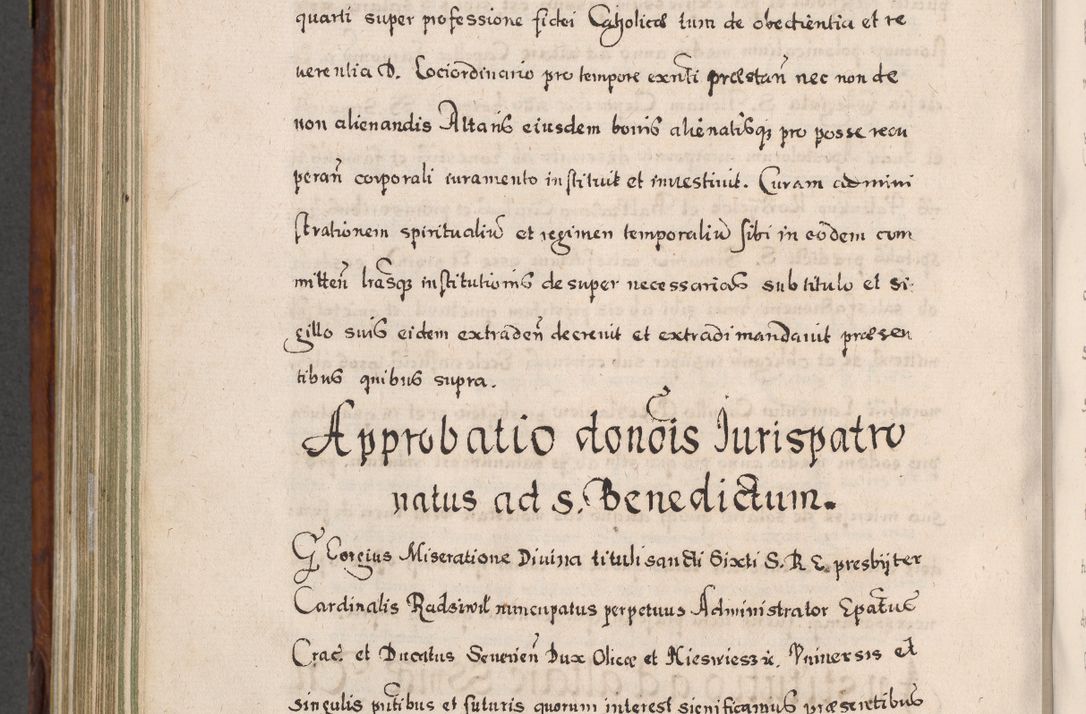 quarti super professione fidei Catholicæ tum de obedientia et re
uerentia D. Lociordinario pro tempore exnti præstan nec non de
non alienandis Altaris eiusdem bonis alienatisq pro posse recu
peran corporali iuramento instituit et inuestiuit. Curam admini
strationem spiritualiu et regimen temporaliu sibi in eodem com
mitten lrasq institutionis desuper necessarias sub titulo et si:
gillo suis eidem extraden decreuit et extradi mandauit præsen
tibus quibus supra.
Approbatio donois Iurispatro
natus ad S. Benedictum.
Georgius Miseratione Diuina tituli sancti Sixti S. R. E. presbijter
Cardinalis Radziwil nuncupatus perpetuus Administrator Epatus
Crac. et Ducatus Seuerien Dux Olicæ et Nieswiesz ic. Vniuersis et
singulis pntibus et futuris quorum interest significamus præsentibus